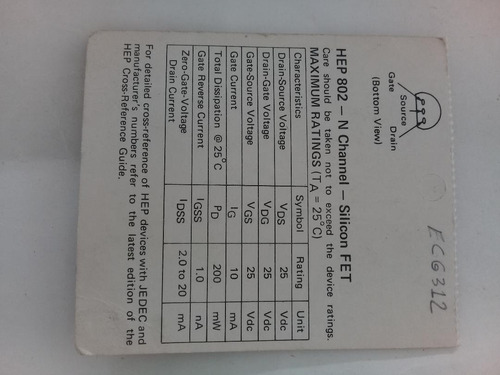 ECG312
Gate
Source
Drain
(Bottom View)
HEP 802 — N Channel — Silicon FET
Care should be taken not to exceed the device ratings.
MAXIMUM RATINGS (TA = 25°C)
Characteristics Symbol Rating Unit
Drain-Source Voltage VDS 25 Vdc
Drain-Gate Voltage VDG 25 Vdc
Gate-Source Voltage VGS 25 Vdc
Gate Current IG 10 mA
Total Dissipation @ 25°C PD 200 mW
Gate Reverse Current IGSS 1.0 nA
Zero-Gate-Voltage
Drain Current IDSS 2.0 to 20 mA
For detailed cross-reference of HEP devices with JEDEC and
manufacturer's numbers refer to the latest edition of the
HEP Cross-Reference Guide.